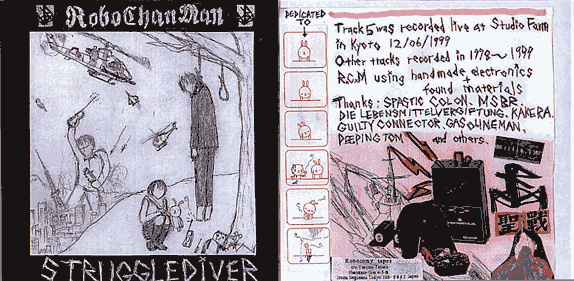 RoboChanMan
STRUGGLEDIVER
DEDICATED
TO
Track 5 was recorded live at Studio Farm
in Kyoto 12/06/1999
Other tracks recorded in 1998~1999
R.C.M using handmade electronics
found materials
Thanks: SPASTIC COLON, MSBR,
DIE LEBENSMITTELVERGIFTUNG, KAKERA,
GUILTY CONNECTOR, GASOLINEMAN,
PEEPING TOM and others.
聖戦
Robotomy tapes